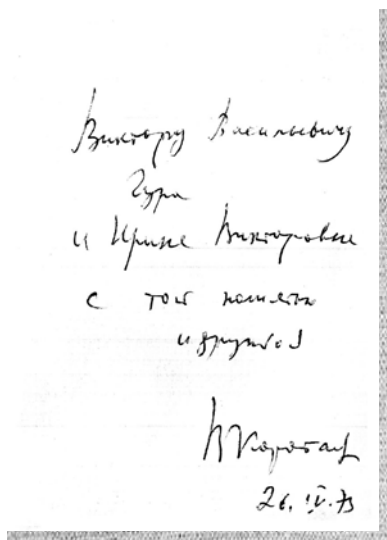 Виктору Васильевичу
Гура
и Ирине Викторовне
с
и дружбой
В Коротаев
26. IV. 73